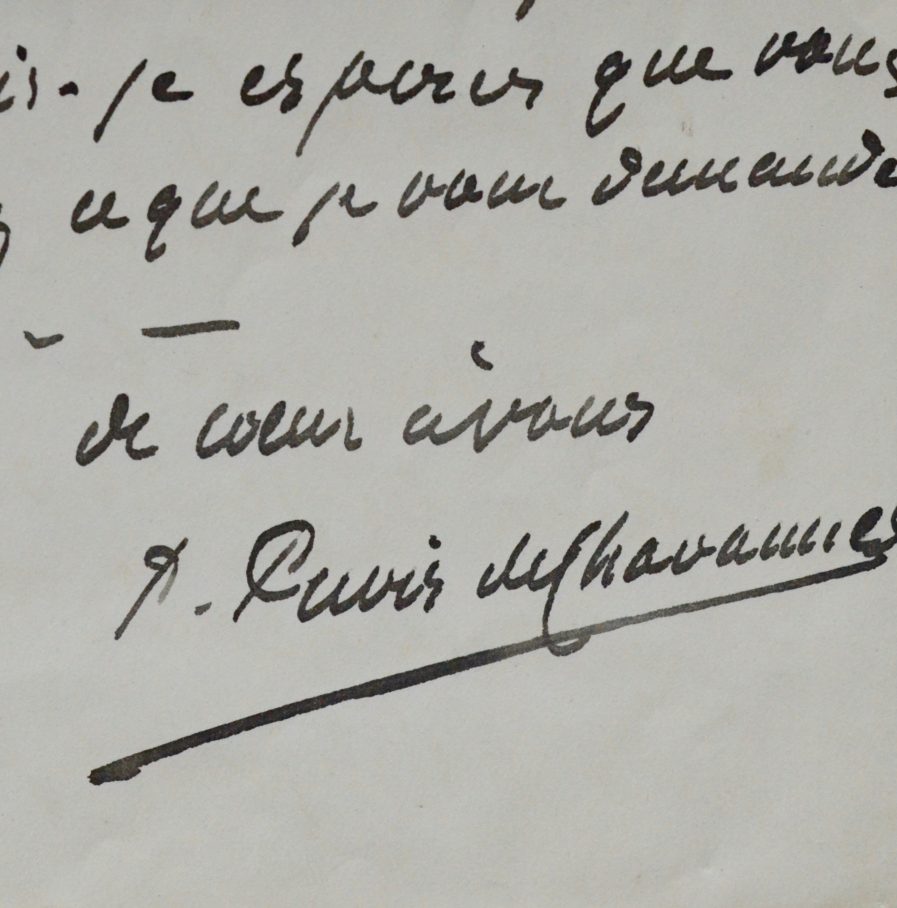 is. je espérais que vous
ce que je vous demande
—
de cœur à vous
P. Puvis de Chavannes